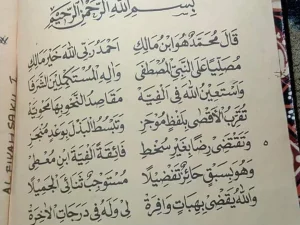 بِسْمِ اللهِ الرَّحْمٰنِ الرَّحِيْمِ
قَالَ مُحَمَّدٌ هُوَ ابْنُ مَالِكِ اَحْمَدُ رَبِّى اللهَ خَيْرَ مَالِكِ
مُصَلِّيًا عَلَى النَّبِيِّ الْمُصْطَفَى وَاٰلِهِ الْمُسْتَكْمِلِيْنَ الشَّرَفَا
وَاَسْتَعِيْنُ اللهَ فِى اَلْفِيَّهْ مَقَاصِدُ النَّحْوِ بِهَا مَحْوِيَّهْ
تُقَرِّبُ الْاَقْصَى بِلَفْظٍ مُوْجَزِ وَتَبْسُطُ الْبَذْلَ بِوَعْدٍ مُنْجَزِ
وَتَقْتَضِى رِضًا بِغَيْرِ سُخْطِ فَائِقَةً اَلْفِيَّةَ ابْنِ مُعْطِى ٥
وَهُوَ بِسَبْقٍ حَائِزٌ تَفْضِيْلَا مُسْتَوْجِبٌ ثَنَائِىَ الْجَمِيْلَا
وَاللهُ يَقْضِى بِهِبَاتٍ وَافِرَهْ لِى وَلَهُ فِى دَرَجَاتِ الْاٰخِرَهْ
ALFIYAH SAKU 1